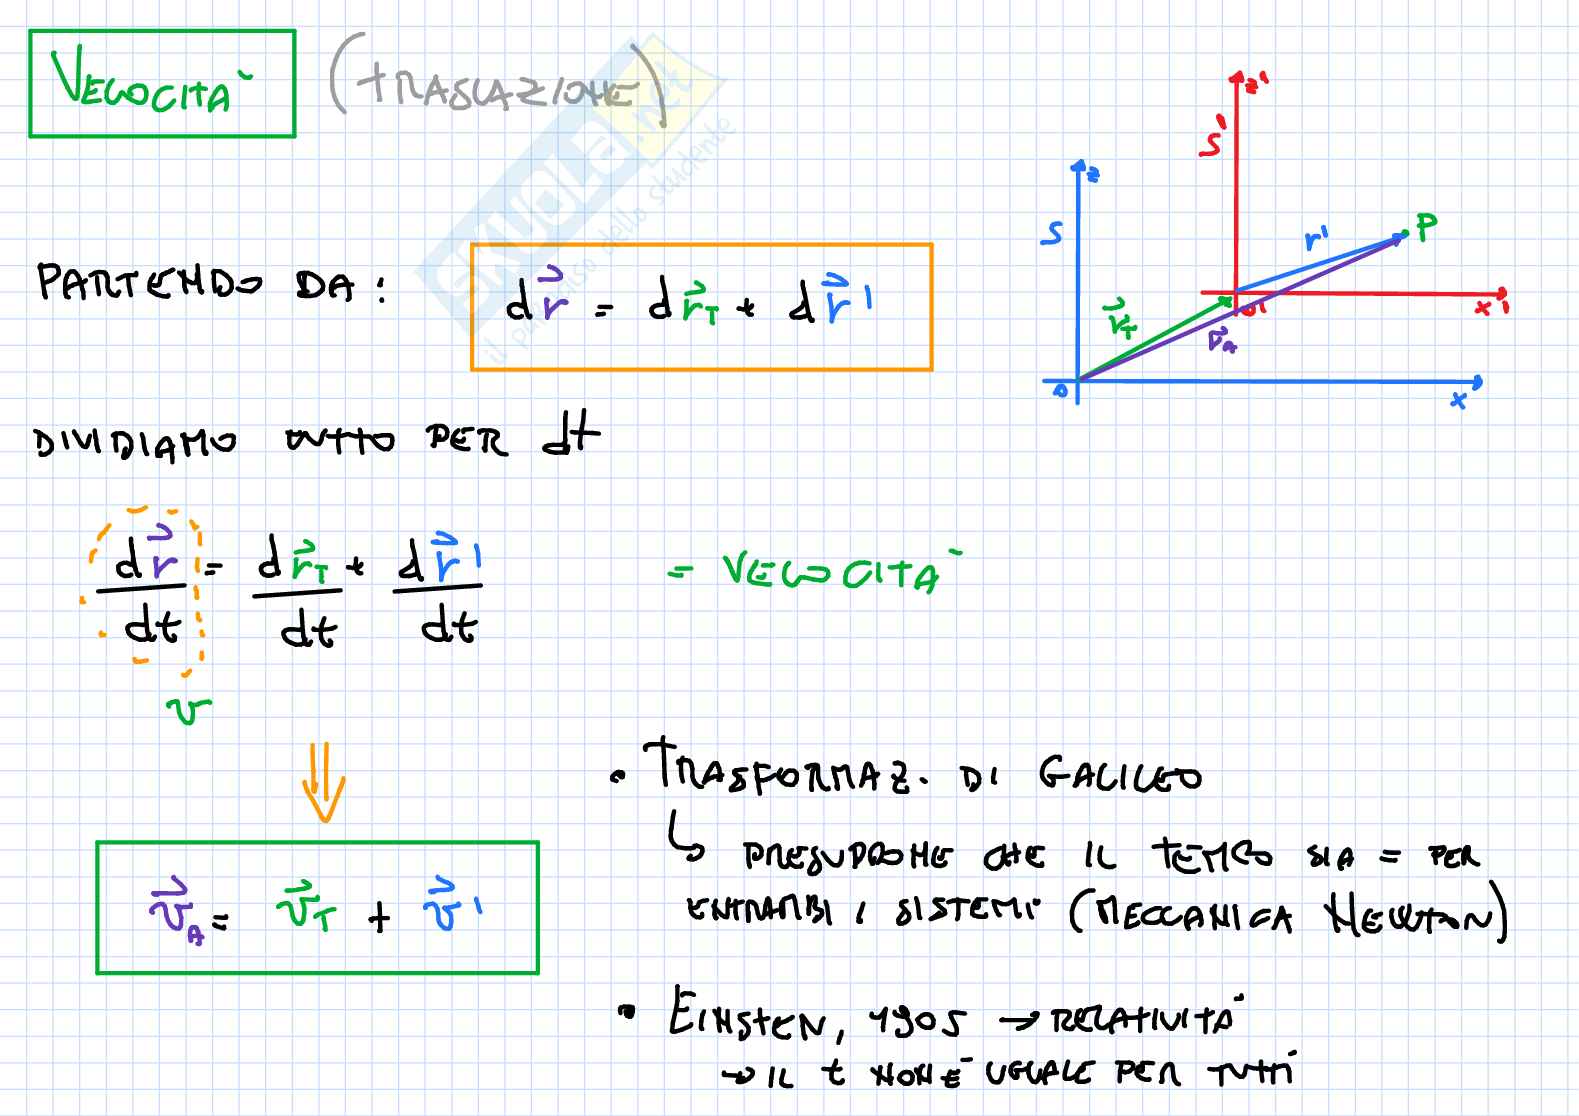 VELOCITÀ (TRASLAZIONE)
PARTENDO DA: d\vec{r} = d\vec{r}_T + d\vec{r}'
DIVIDIAMO TUTTO PER dt
\frac{d\vec{r}}{dt} = \frac{d\vec{r}_T}{dt} + \frac{d\vec{r}'}{dt} = VELOCITÀ
v
\vec{v}_A = \vec{v}_T + \vec{v}'
• TRASFORMAZ. DI GALILEO
↳ PRESUPPONE CHE IL TEMPO SIA = PER
ENTRAMBI I SISTEMI (MECCANICA NEWTON)
• EINSTEN, 1905 → RELATIVITÀ
→ IL t NON È UGUALE PER TUTTI
z'
S'
z
S
r'
P
\vec{r}_T
O'
x'
\vec{r}_A
O
x
SKUOLA.net
il paradiso dello studente